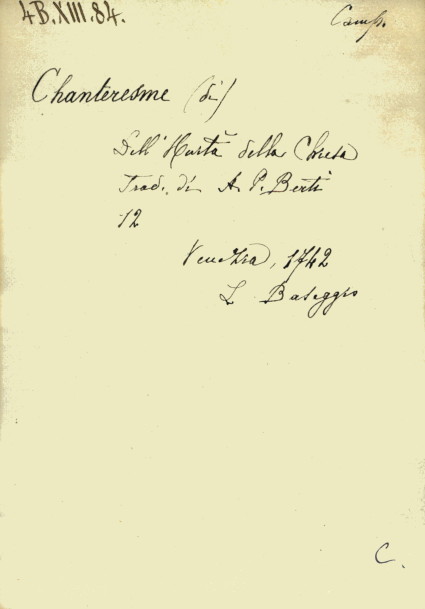 4B.XIII.84.
Camp.
Chanteresme (di)
Dell' Unità della Chiesa
Trad. di A P. Berti
12
Venezia, 1742
L Baseggio
C.